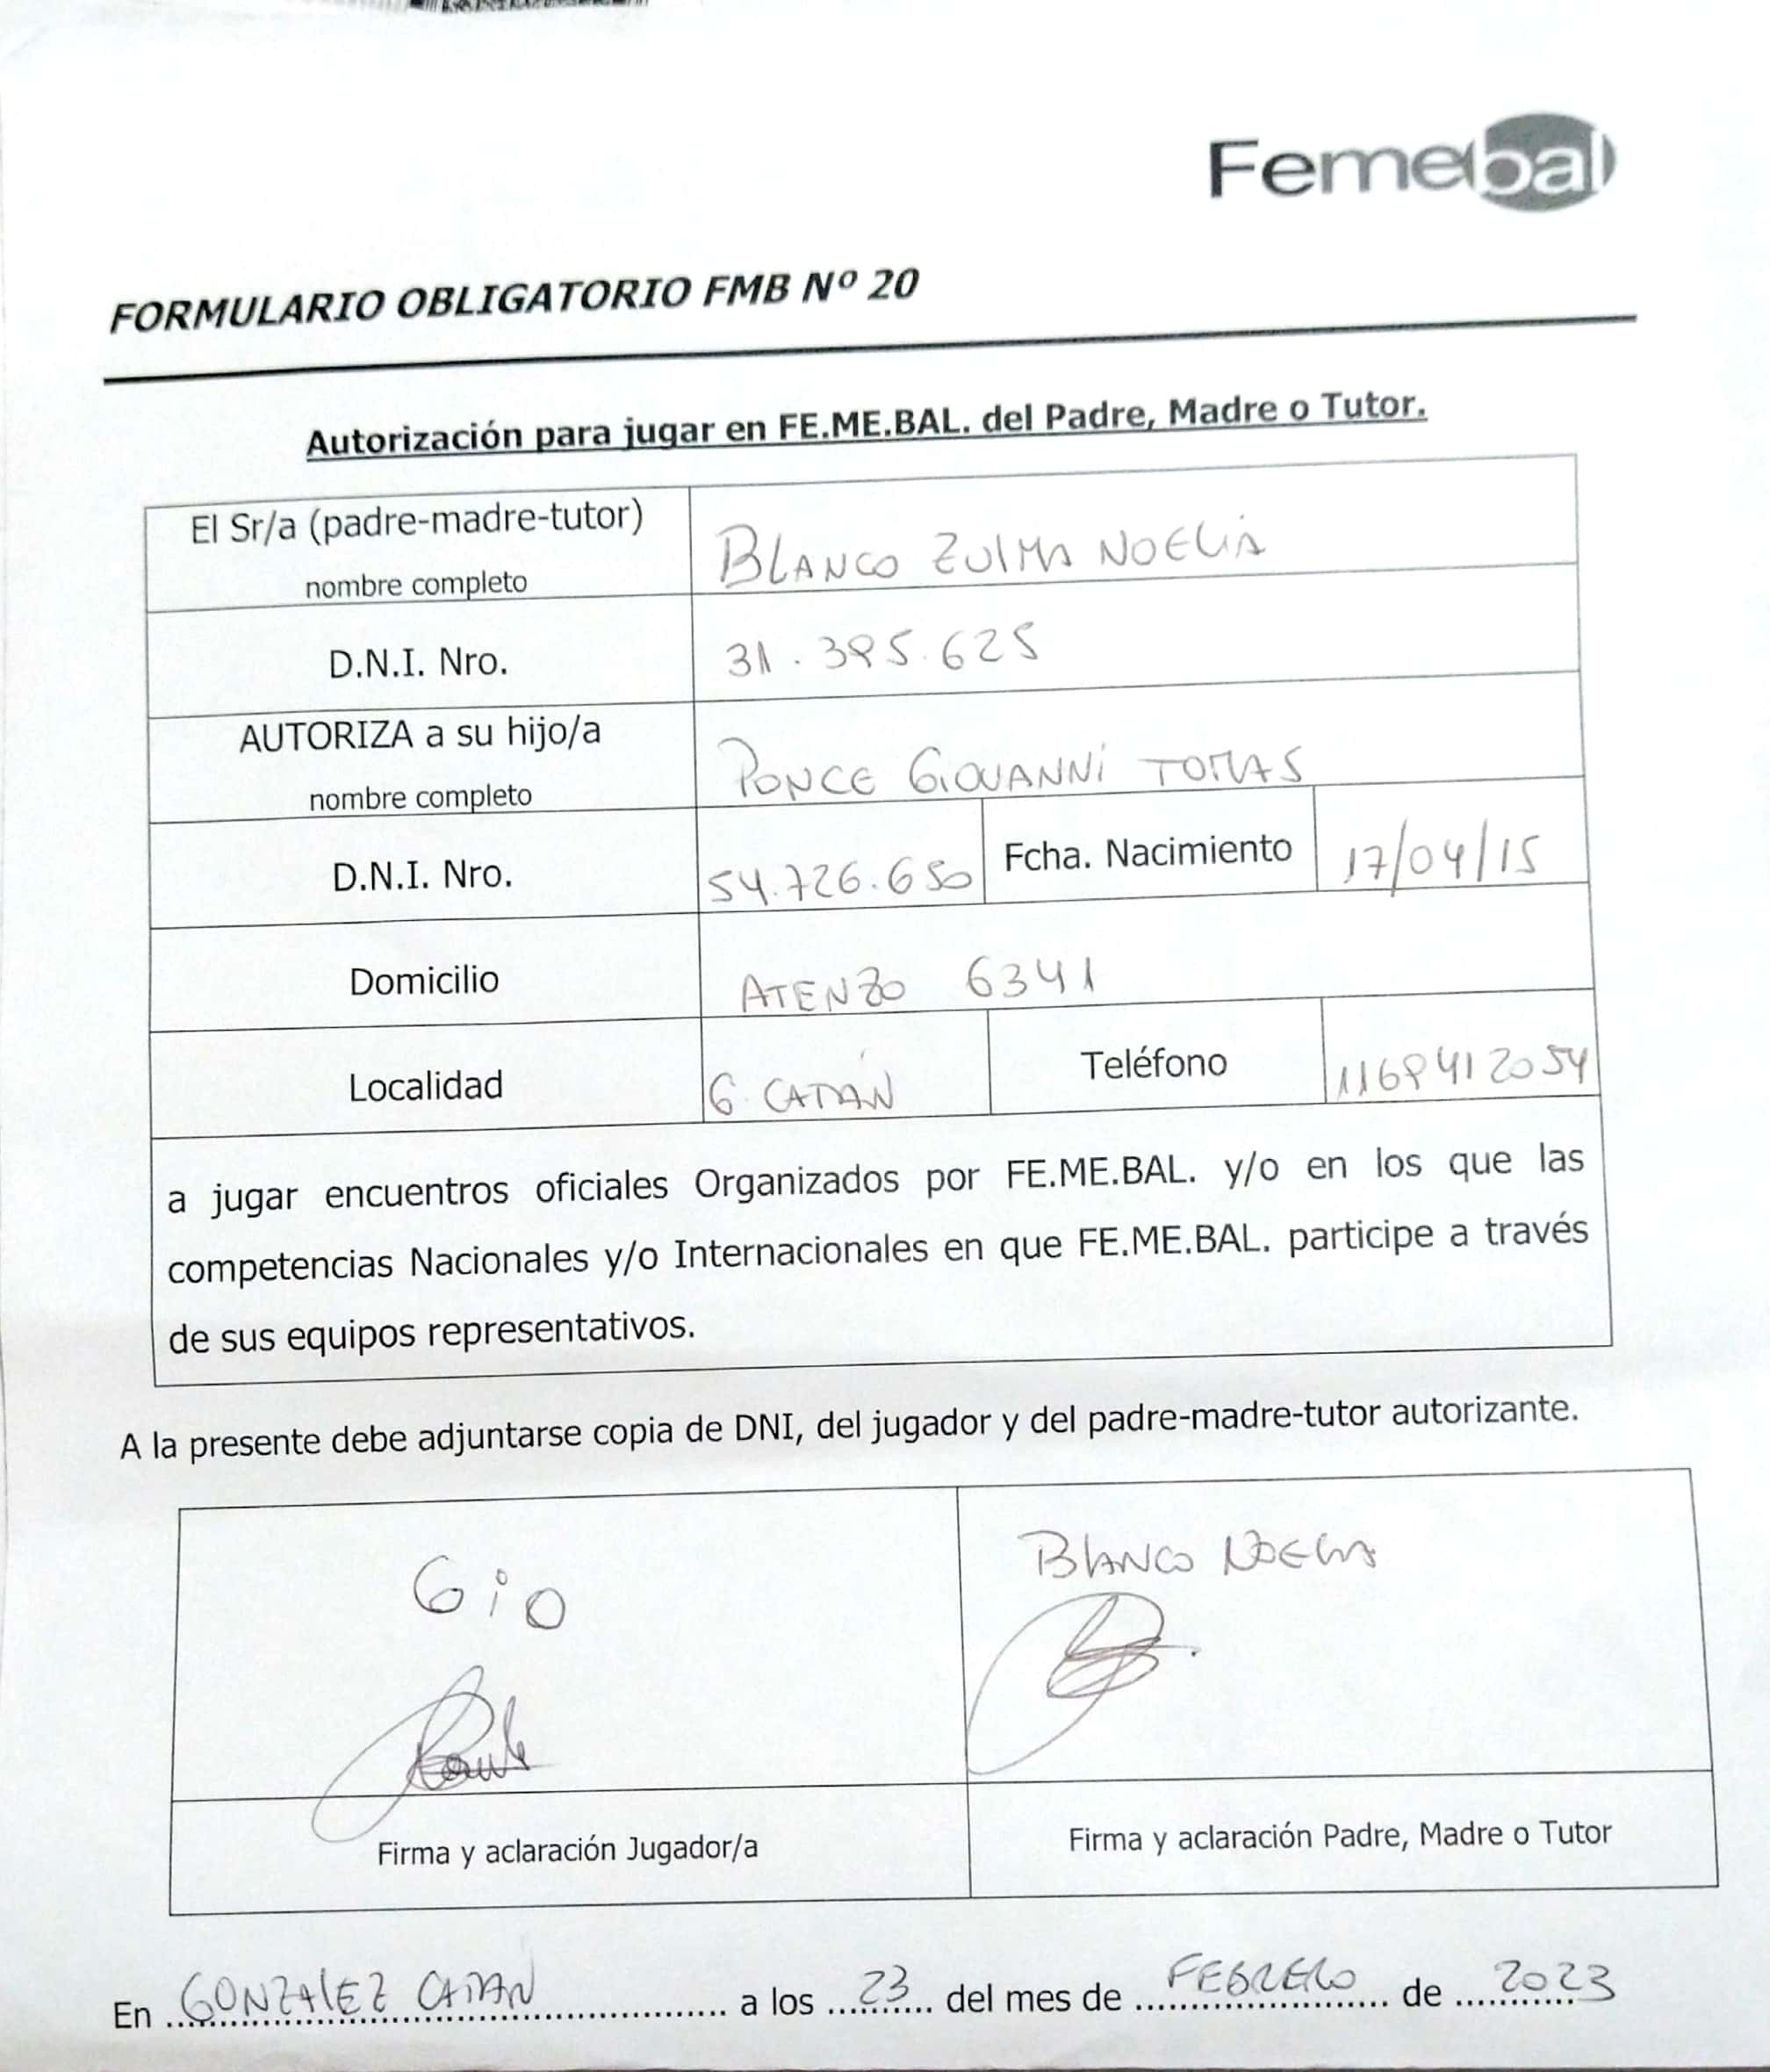 Femebal
FORMULARIO OBLIGATORIO FMB Nº 20
Autorización para jugar en FE.ME.BAL. del Padre, Madre o Tutor.
El Sr/a (padre-madre-tutor)
nombre completo
BLANCO ZULMA NOELIA
D.N.I. Nro.
31.395.625
AUTORIZA a su hijo/a
nombre completo
PONCE GIOVANNI TOMAS
D.N.I. Nro.
54.726.650
Fcha. Nacimiento
17/04/15
Domicilio
ATENZO 6341
Localidad
G. CATAN
Teléfono
1169412054
a jugar encuentros oficiales Organizados por FE.ME.BAL. y/o en los que las
competencias Nacionales y/o Internacionales en que FE.ME.BAL. participe a través
de sus equipos representativos.
A la presente debe adjuntarse copia de DNI, del jugador y del padre-madre-tutor autorizante.
GiO
BLANCO NOELIA
Firma y aclaración Jugador/a
Firma y aclaración Padre, Madre o Tutor
En GONZALEZ CATAN a los 23 del mes de FEBRERO de 2023